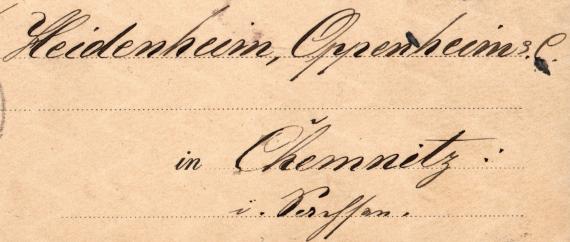 Heidenheim, Oppenheim & C.
in Chemnitz
i. Sachsen.